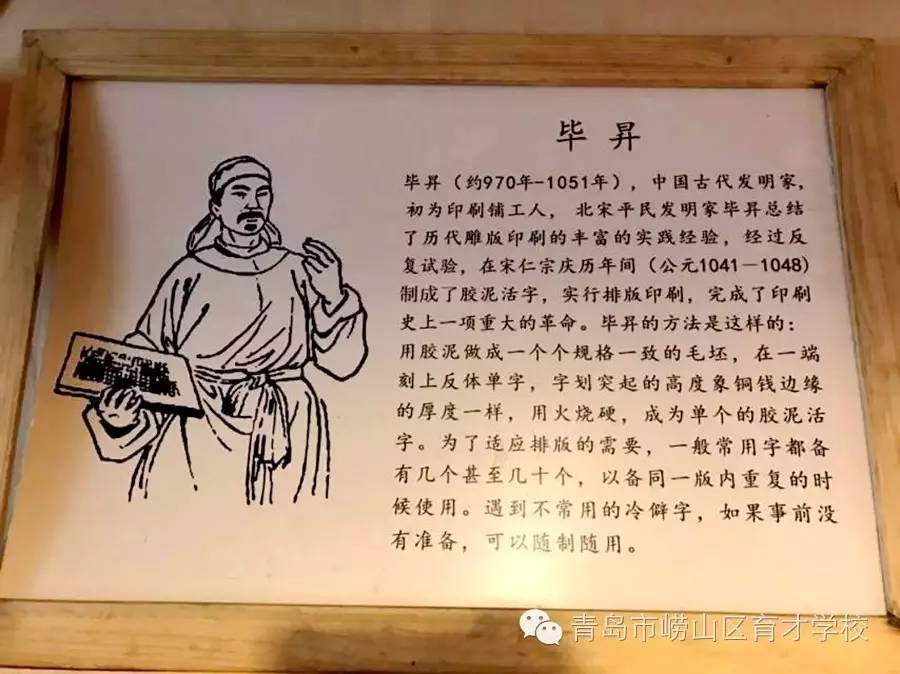 毕昇
毕昇（约970年-1051年），中国古代发明家，
初为印刷铺工人， 北宋平民发明家毕昇总结
了历代雕版印刷的丰富的实践经验，经过反
复试验，在宋仁宗庆历年间（公元1041－1048）
制成了胶泥活字，实行排版印刷，完成了印刷
史上一项重大的革命。毕昇的方法是这样的：
用胶泥做成一个个规格一致的毛坯，在一端
刻上反体单字，字划突起的高度象铜钱边缘
的厚度一样，用火烧硬，成为单个的胶泥活
字。为了适应排版的需要，一般常用字都备
有几个甚至几十个，以备同一版内重复的时
候使用。遇到不常用的冷僻字，如果事前没
有准备，可以随制随用。
青岛市崂山区育才学校